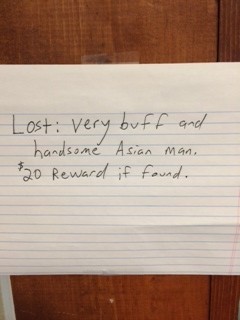 Lost: Very buff and
handsome Asian man.
$20 Reward if found.